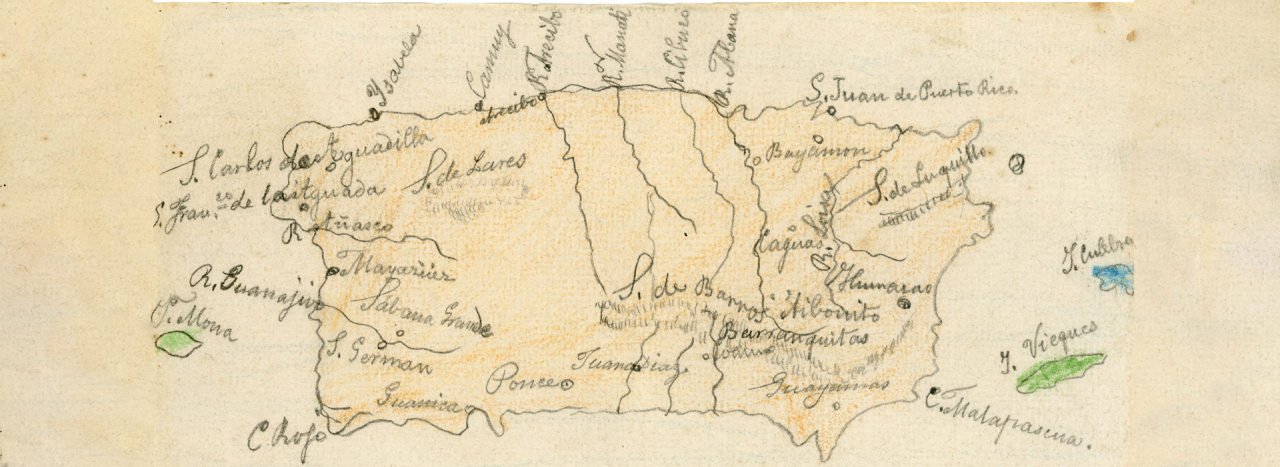 Ysabela
Camuy
Arecibo
R. Arecibo
R. Manatí
R. Cibuco
R. Abana
S. Juan de Puerto Rico.
S. Carlos de Aguadilla
S. Fran.co de la Aguada
S. de Lares
Bayamon
S. de Luquillo
R. Añasco
R. Loisa
Caguas
Mayagüez
Humacao
I. Culebra
R. Guanajivo
I. Mona
Sabana Grande
S. de Barros
Aibonito
Barranquitas
Coamo
S. German
Juana Diaz
I. Vieques
Ponce
Guayamas
Guanica
C. Malapascua.
C. Rojo